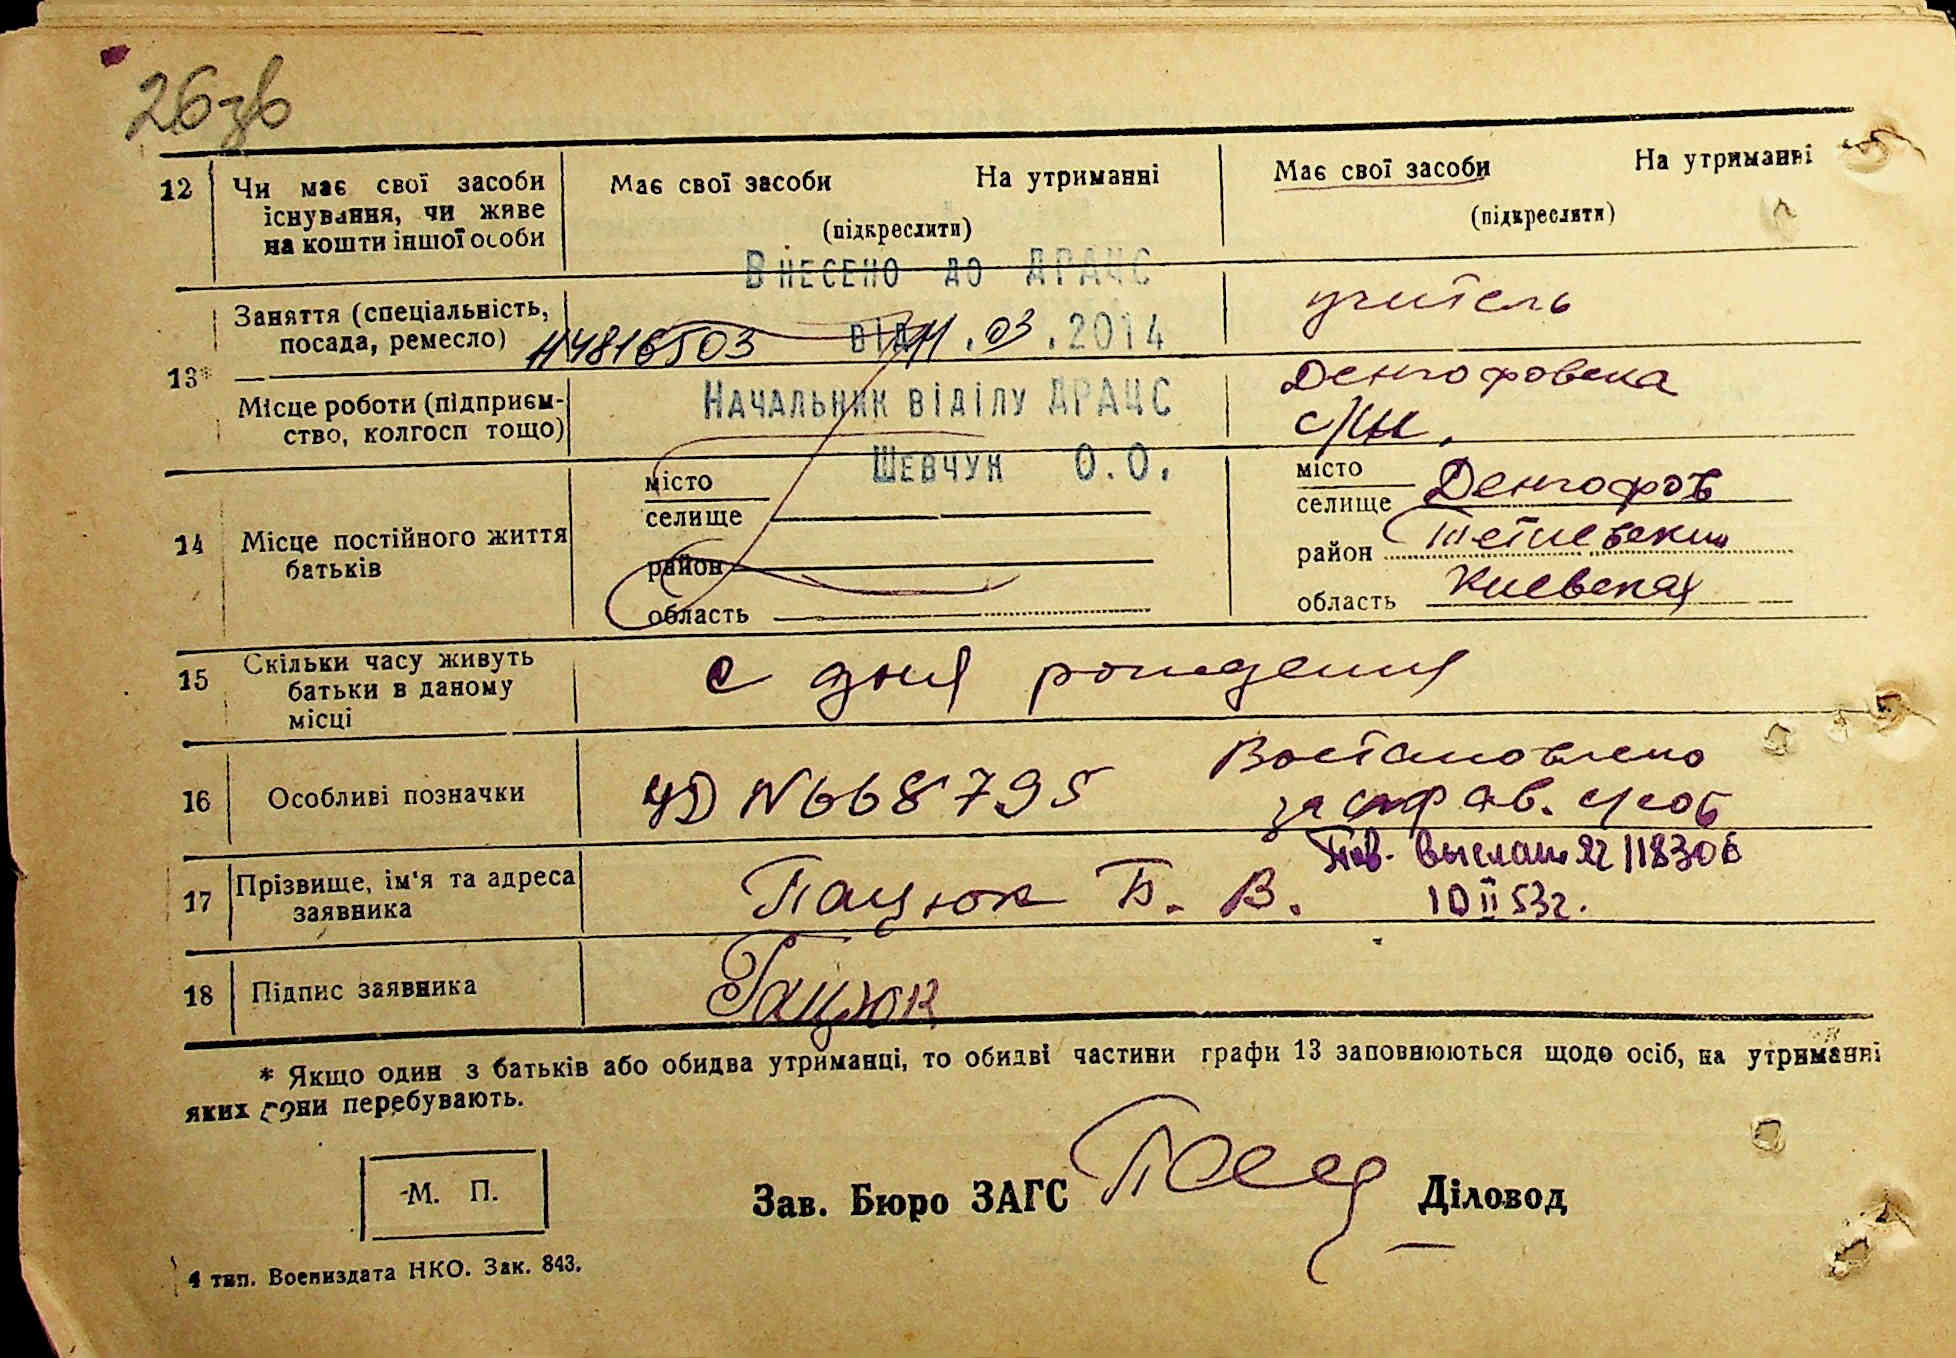 26зв
12 Чи має свої засоби існування, чи живе на кошти іншої особи
Має свої засоби На утриманні
(підкреслити)
Має свої засоби На утриманні
(підкреслити)
Внесено до ДРАЦС
від 11.03.2014
Начальник відділу ДРАЦС
Шевчук О.О.
13*
Заняття (спеціальність,
посада, ремесло)
учитель
Місце роботи (підприєм-
ство, колгосп тощо)
Денгофовска
14 Місце постійного життя
батьків
місто
селище
район
область
місто
селище Денгофов
район Тетиевский
область Киевская
15 Скільки часу живуть
батьки в даному
місці
с дня рождения
16 Особливі позначки
N668795
Востановлено
17 Прізвище, ім'я та адреса
заявника
Пацюк Б. В.
10 II 53г.
18 Підпис заявника
Пацюк
* Якщо один з батьків або обидва утриманці, то обидві частини графи 13 заповнюються щодо осіб, на утриманні
яких вони перебувають.
М. П.
Зав. Бюро ЗАГС
Діловод
4 тип. Воениздата НКО. Зак. 843.